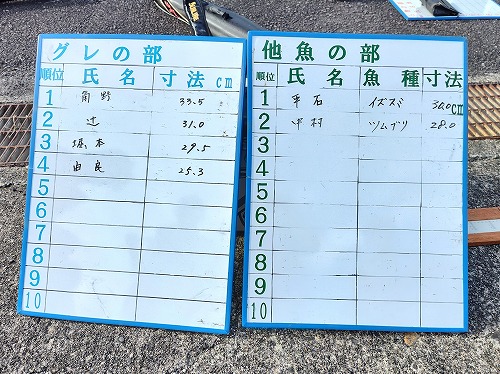 グレの部
順位 氏名 寸法cm
1 角野 33.5
2 辻 31.0
3 堀本 29.5
4 由良 25.3
5
6
7
8
9
10
他魚の部
順位 氏名 魚種 寸法
1 平石 イズスミ 30.0cm
2 中村 ツムブリ 28.0
3
4
5
6
7
8
9
10